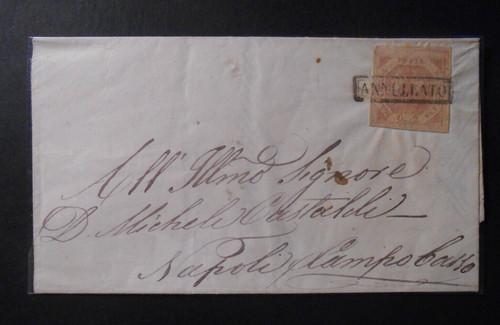 ANNULLATO
All' Illmo Signore
D. Michele Castaldi
Napoli p Campobasso